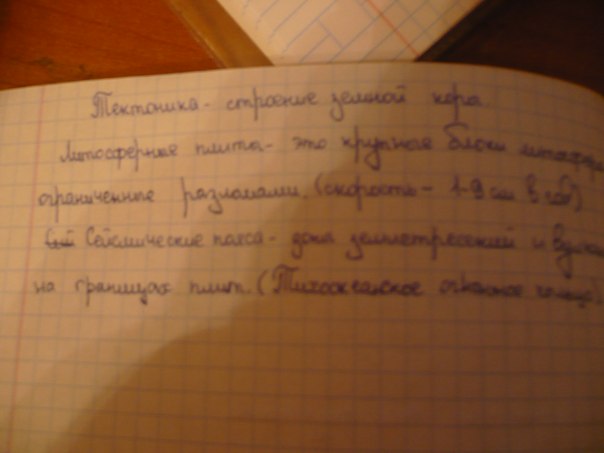 Тектоника - строение земной кора
Литосферные плиты - это крупные блоки литосферы
ограниченные разломами. (скорость - 1-9 см в год)
Сейсмические пояса - зона землетресений и
на границах плит. (Тихоокеанское огненное кольцо).